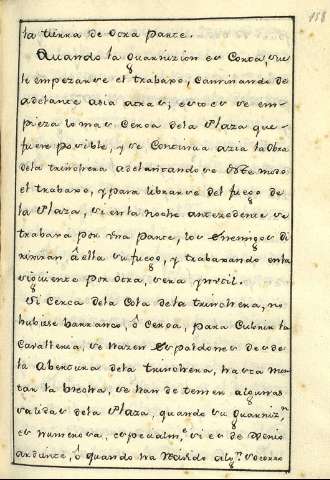 158
la tierra de otra parte.
Quando la guarnizion es Corta, sue
le empezarse el trabaxo, Caminando de
adelante asia atras; esto es se em-
pieza lo mas Cerca dela Plaza que
fuere posible, y se Continua azia la Obra
dela trinchera adelantando se este modo
el trabaxo, y para librarse del fuego de
la Plaza, si enla noche antezedente se
trabaxa por una parte, los Enemigos di
rixiran â ella su fuego, y trabaxando enla
siguiente por otra, sera ynutil.
Si Cerca dela Cola dela trinchera, no
hubiese barranco, ô Cerca, para Cubrir la
Cavalleria, se hazen Espaldones desde
la Abertura dela trinchera, hasta mon
tar la brecha, se han de temer algunas
salidas dela Plaza, quando su guarnizn
es numerosa, especialme si es de Genio
ardiente, ô quando ha Recivido algn socorro